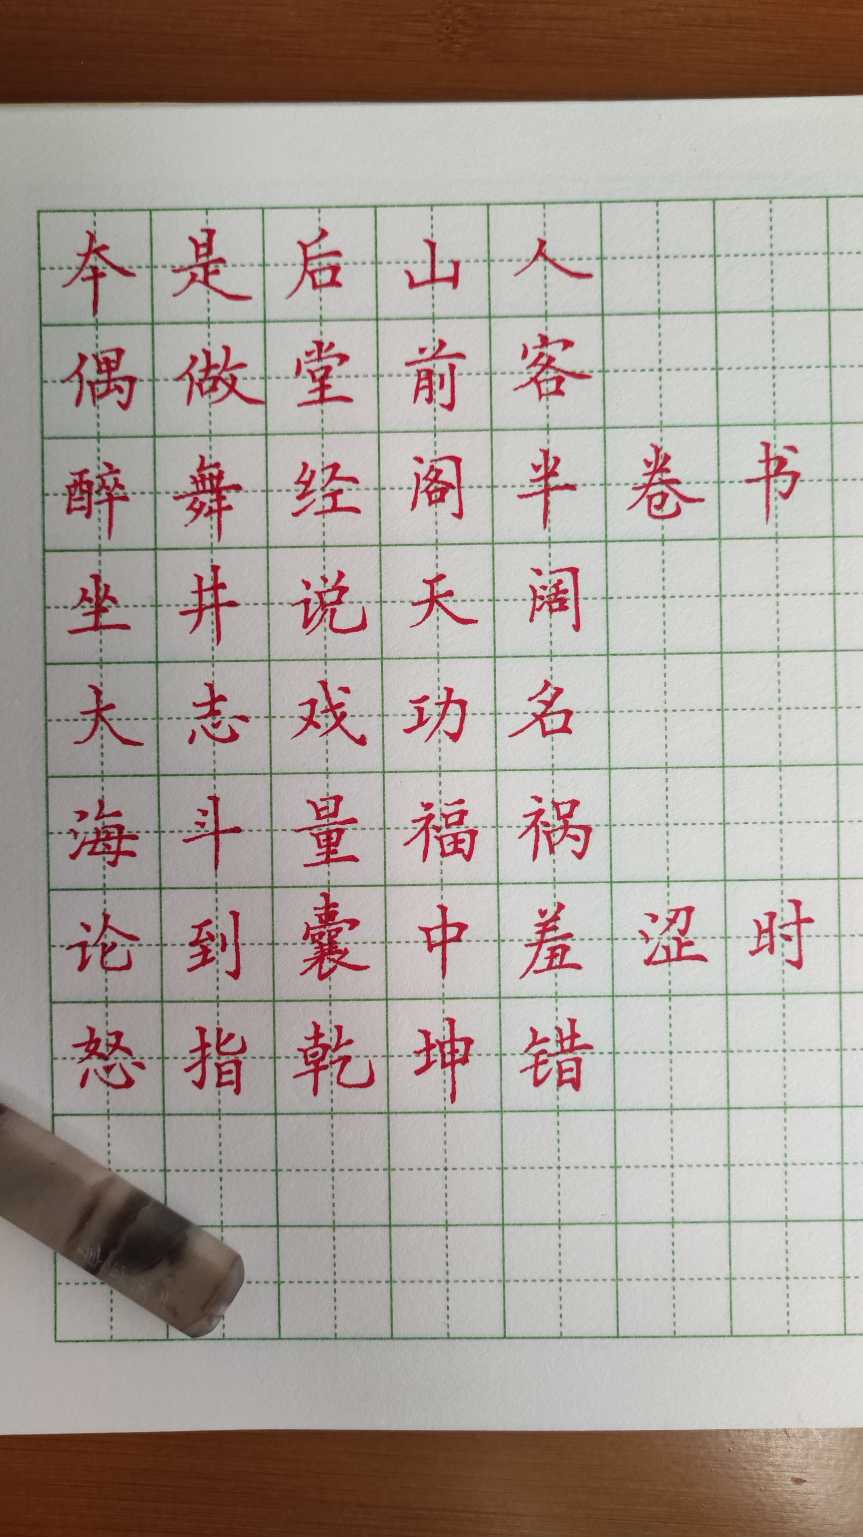 本是后山人
偶做堂前客
醉舞经阁半卷书
坐井说天阔
大志戏功名
海斗量福祸
论到囊中羞涩时
怒指乾坤错